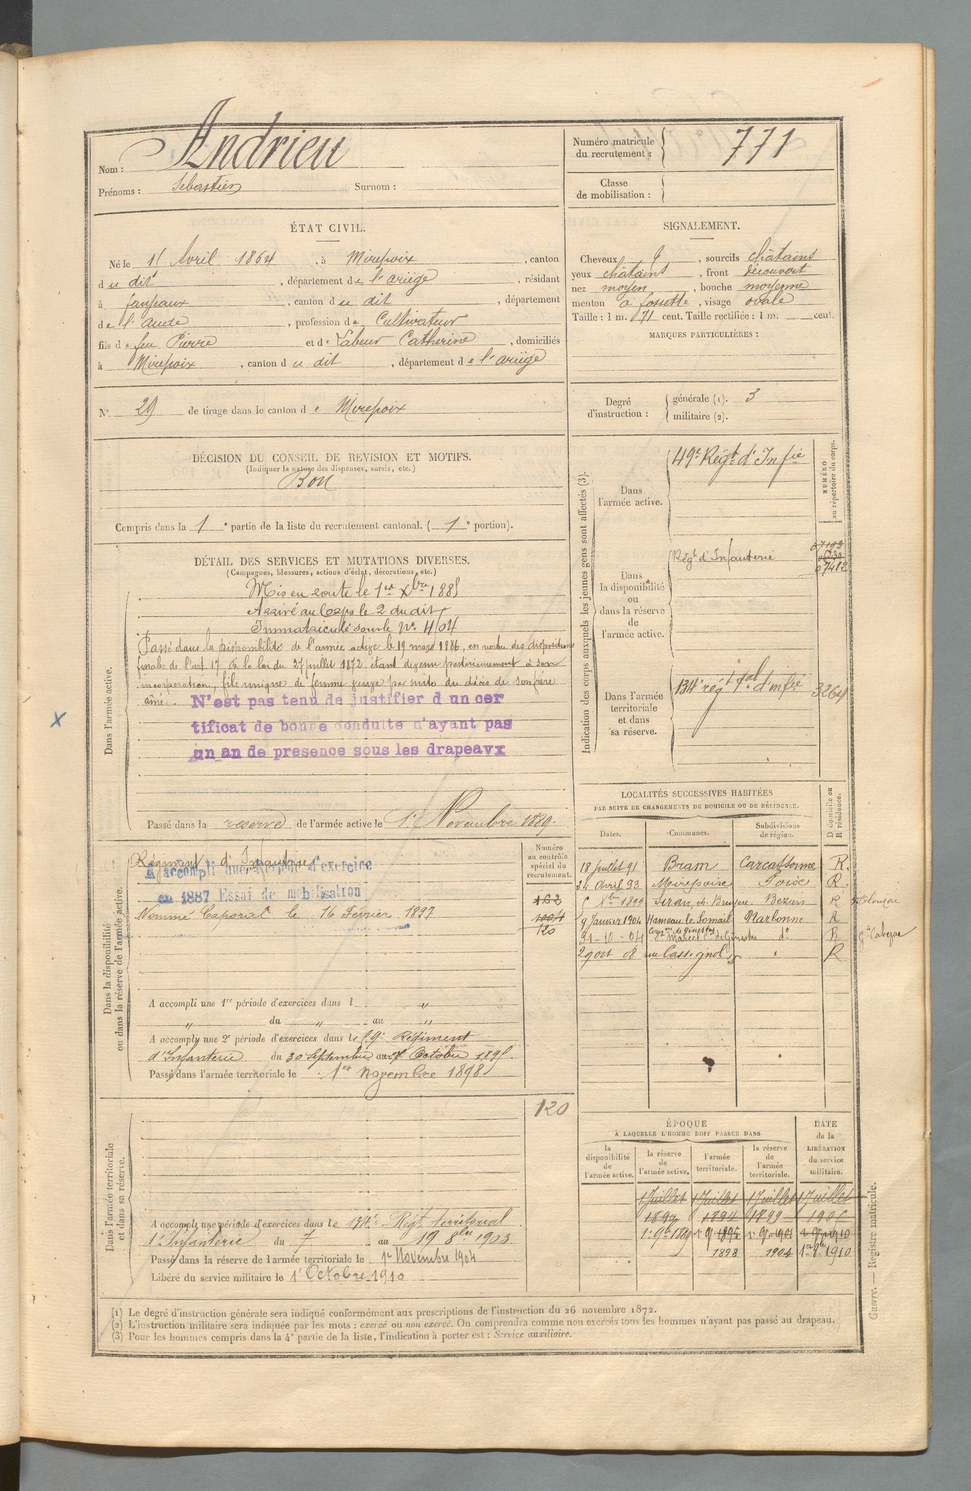 Nom : Andrieu
Prénoms : Sébastien Surnom :
Numéro matricule du recrutement : 771
Classe de mobilisation :
ÉTAT CIVIL.
Né le Avril 1864, à Mirepoix, canton
du dit, département de l'ariège, résidant
à fanjeaux, canton du dit, département
de l'aude, profession de Cultivateur
fils de feu Pierre et de Labeur Catherine, domiciliés
à Mirepoix, canton du dit, département de l'ariège
N° 29 de tirage dans le canton de Mirepoix
SIGNALEMENT.
Cheveux , sourcils châtains
yeux châtains, front découvert
nez moyen, bouche moyenne
menton à fossette, visage ovale
Taille : 1 m. 71 cent. Taille rectifiée : 1 m. cent.
MARQUES PARTICULIÈRES :
Degré d'instruction : générale (1). 3
militaire (2).
DÉCISION DU CONSEIL DE REVISION ET MOTIFS.
(Indiquer la nature des dispenses, sursis, etc.)
Bon
Compris dans la 1e partie de la liste du recrutement cantonal. (1e portion).
DÉTAIL DES SERVICES ET MUTATIONS DIVERSES.
(Campagnes, blessures, actions d'éclat, décorations, etc.)
Dans l'armée active.
Mis en route le 1er Xbre 1885
Arrivé au Corps le 2 du dit
Immatriculé sous le N° 4104
Passé dans la disponibilité de l'armée active le 19 mars 1886, en vertu des dispositions
finales de l'art. 17 de la loi du 27 juillet 1872, étant devenu postérieurement à son
incorporation, fils unique de femme veuve par suite du décès de son frère
ainé.
N'est pas tenu de justifier d un cer
tificat de bonne conduite n'ayant pas
un an de presence sous les drapeaux
Passé dans la reserve de l'armée active le 1er Novembre 1889.
Indication des corps auxquels les jeunes gens sont affectés (3).
NUMÉRO au répertoire du corps.
Dans l'armée active. 49e Régt d'Infie
Dans la disponibilité ou dans la réserve de l'armée active. Régt d'Infanterie
07482
Dans l'armée territoriale et dans sa réserve. 134e régt Tal d'infie
LOCALITÉS SUCCESSIVES HABITÉES
PAR SUITE DE CHANGEMENTS DE DOMICILE OU DE RÉSIDENCE.
Dates. Communes. Subdivisions de région. D domicile ou R résidence.
18 Juillet 91 Bram Carcassonne R.
24 Avril 93 Foix R.
Béziers R
9 Janvier 1904 Hameau le Somail Narbonne R
31-10-04 do R
R
Dans la disponibilité ou dans la réserve de l'armée active.
Numéro au contrôle spécial du recrutement.
Régiment d'Infanterie
A accompli une période d'exercice
en 1887 Essai de mobilisation
Nommé Caporal le 16 Février 1897
120
A accompli une 1re période d'exercices dans l "
" du " au "
A accompli une 2e période d'exercices dans le Régiment
d'Infanterie du 30 Septembre au Octobre 1895
Passé dans l'armée territoriale le 1er novembre 1898
120
Dans l'armée territoriale et dans sa réserve.
A accompli une période d'exercices dans le 134e Régt territorial
d'Infanterie du 7 au 19 8bre 1903
Passé dans la réserve de l'armée territoriale le 1er Novembre 1904
Libéré du service militaire le 1er Octobre 1910
ÉPOQUE
À LAQUELLE L'HOMME DOIT PASSER DANS
DATE de la LIBÉRATION du service militaire.
la disponibilité de l'armée active. la réserve de l'armée active. l'armée territoriale. la réserve de l'armée territoriale.
1 Juillet 1 Juillet 1 Juillet 1 Juillet
1894 1899
1898 1904 1910
(1) Le degré d'instruction générale sera indiqué conformément aux prescriptions de l'instruction du 26 novembre 1872.
(2) L'instruction militaire sera indiquée par les mots : exercé ou non exercé. On comprendra comme non exercés tous les hommes n'ayant pas passé au drapeau.
(3) Pour les hommes compris dans la 4e partie de la liste, l'indication à porter est : Service auxiliaire.
Guerre. — Registre matricule.